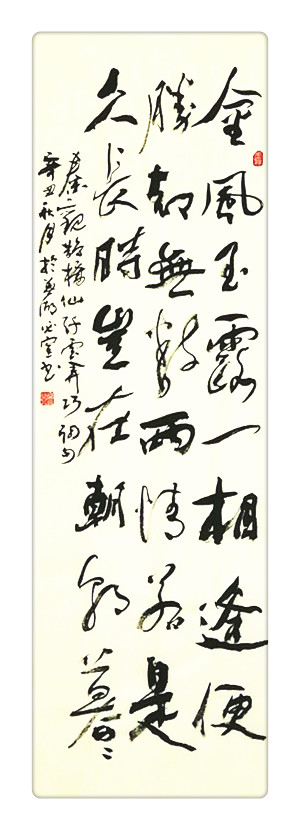 金風玉露一相逢便
勝却無數兩情若是
久長時豈在朝朝暮〻
秦觀鵲橋仙纖雲弄巧詞句
辛丑秋月於室書